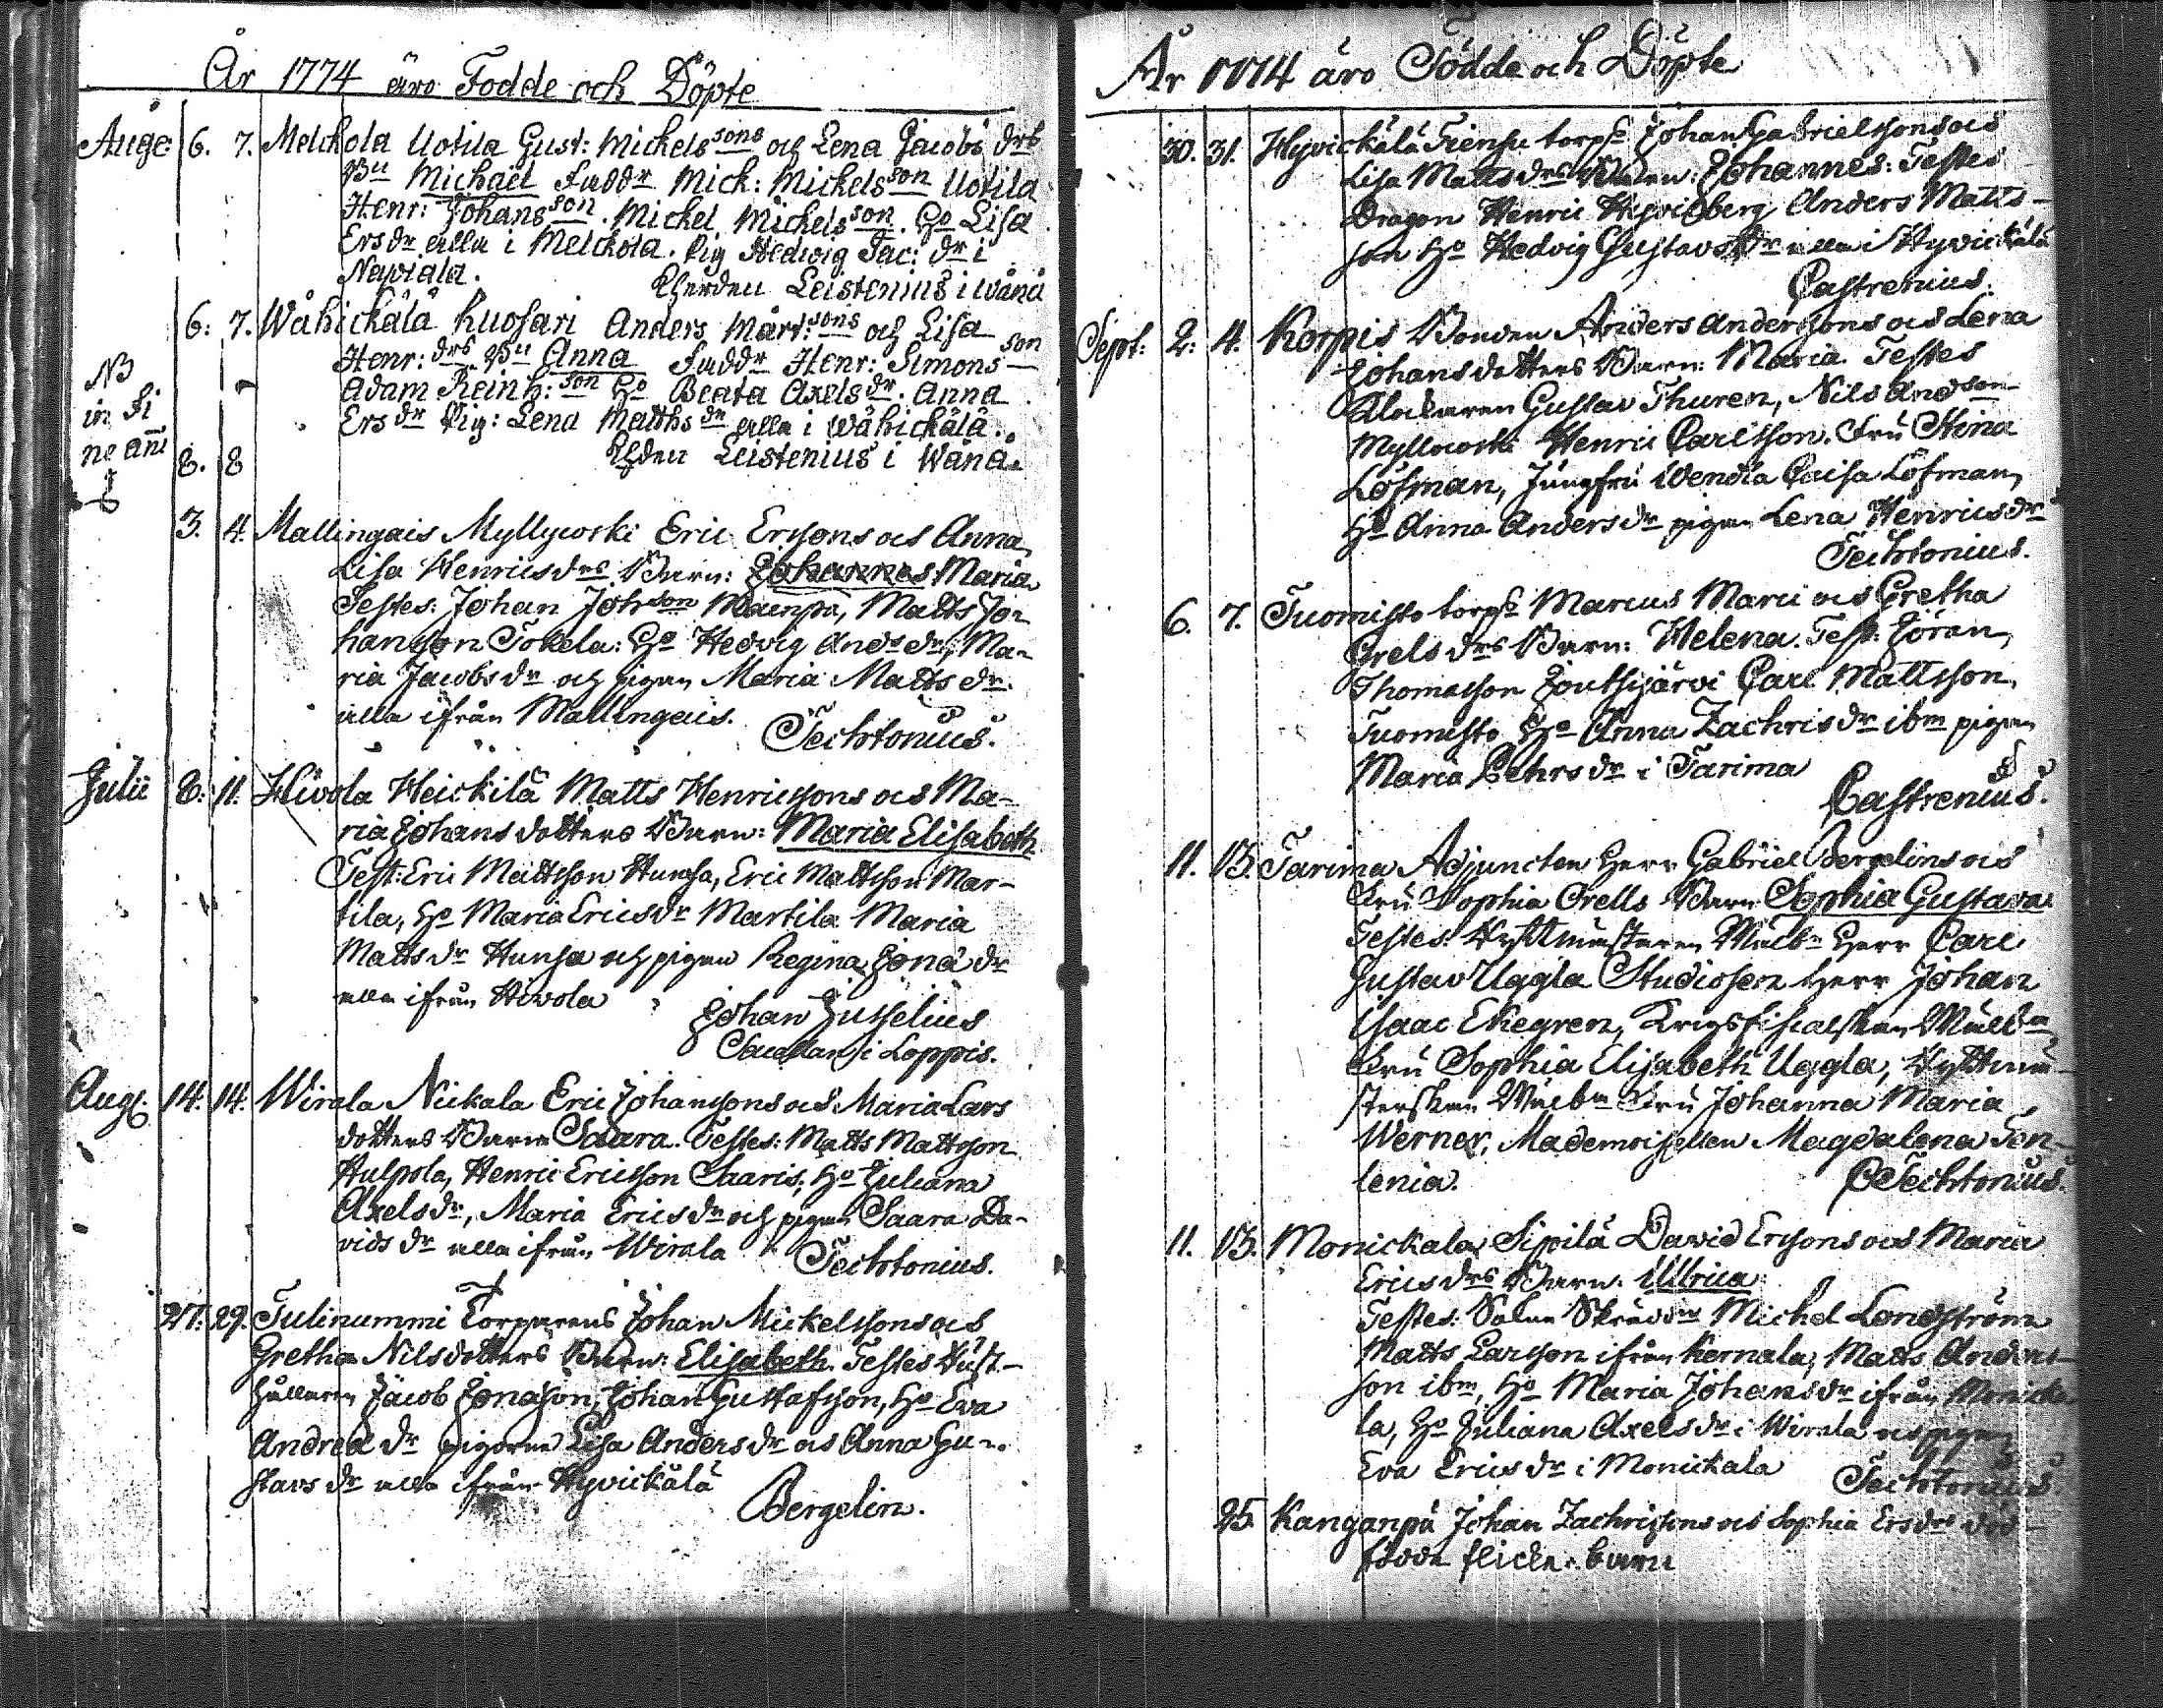 År 1774 äro Fodde och Döpte
Auge 6. 7. Melckola Uotila Gust: Michels sons och Lena Jacobs drs
Bn Michaël Faddr Mick: Mickels son Uotila
Henr: Johans son. Michel Michels son. Ho Lisa
Ers dr alla i Melckola. Pig Hedwig Jac: dr i
Nayviala. Leistenius i Wånå
6: 7. Wåhickälä Kuosari Anders Mårt: sons och Lisa
Henr: drs Bn Anna Faddr Henr: Simons son
Adam Reinh: son Ho Beata Axels dr. Anna
Ers dr Pig: Lena Matths dr alla i Wåhickälä.
NB
in fi
ne ani
8. 8 Leistenius i Wånå.
3. 4. Mallingais Myllyoski Eric Ersons och Anna
Lisa Henricsdrs Barn: Johannes Maria
Testes: Johan Joh son Maenpä, Matts Jo-
hanson Tokela: Ho Hedvig Ands dr, Ma-
ria Jacobs dr och pigan Maria Matts dr.
alla ifrån Mallingais.
Techtonius.
Julii 8. 11. Hivola Heickilä Matts Henricssons och Ma-
ria Johans dotters Barn: Maria Elisabeth
Test: Eric Mattsson Hunsa, Eric Mattsson Mar-
tila, Ho Maria Ericsdr Martila Maria
Matts dr Hunsa och pigan Regina Jona dr
alla ifrån Hivola
Johan Jusselius
Sacellan i Loppis.
Aug. 14. 14. Wirala Nickala Eric Johanssons och Maria Lars
dotters Barn Saara. Testes: Matts Mattsson
Hulpola, Henric Ericsson Saaris, Ho Juliana
Axels dr, Maria Erics dr och pigan Saara Da-
vids dr alla ifrån Wirala
Techtonius.
27. 29. Tulinummi Torparens Johan Mickelssons och
Gretha Nilsdotters Barn: Elisabeth. Testes Hus-
hållaren Jacob Jonason, Johan Gustafsson, Ho Eva
Andrea dr pigorna Lisa Anders dr och Anna Gu-
stavs dr alla ifrån Hyvickälä
Bergelin.
År 1774 äro Födde och Döpte
30. 31. Hyvickälä torps Johan Gabrielssons och
Lisa Matts drs Barn: Johannes: Testes
Dragon Henric Hyvidberg Anders Matts-
son Ho Hedvig Gustavs dr alla i Hyvickälä
Castrenius.
Sept: 2. 4. Korpis Bonden Anders Anderssons och Lena
Johansdotters Barn: Maria. Testes
Klockaren Gustav Thuren, Nils And son
Myllyoski Henric Carlsson. Fru Stina
Löfman, Jungfru Wendla Caisa Löfman,
Ho Anna Anders dr pigan Lena Henrics dr
Techtonius.
6. 7. Tuomisto torps Marcus Marci och Gretha
Grels drs Barn: Helena. Test: Jöran
Thomasson Joutsijärvi Carl Mattsson
Tuomisto Ho Anna Zachris dr ibm pigan
Maria Pehrs dr i Tarima
Castrenius.
11. 13. Tarima Adjuncten Herr Gabriel Bergelins och
Fru Sophia Orells Barn Sophia Gustava
Testes: Ryttmästaren Herr Carl
Gustav Uggla Studiosen Herr Johan
Isaac Ekegren, Krigsfiscalskan
Fru Sophia Elisabeth Uggla, Ryttmä-
sterskan Fru Johanna Maria
Werner, Mademoisellen Magdalena Ten-
lenia.
Techtonius.
11. 13. Monickala Sipilä David Ersons och Maria
Erics drs Barn: Ulrica
Testes: Michel Londström
Matts Larsson ifrån Kernala, Matts Anders-
son ibm, Ho Maria Johans dr ifrån Monicka-
la, Ho Juliana Axels dr i Wirala och pigan
Eva Erics dr i Monickala
Techtonius.
25. Kanganpä Johan Zachrissons och Sophia Ersdrs död-
födda flicke-barn